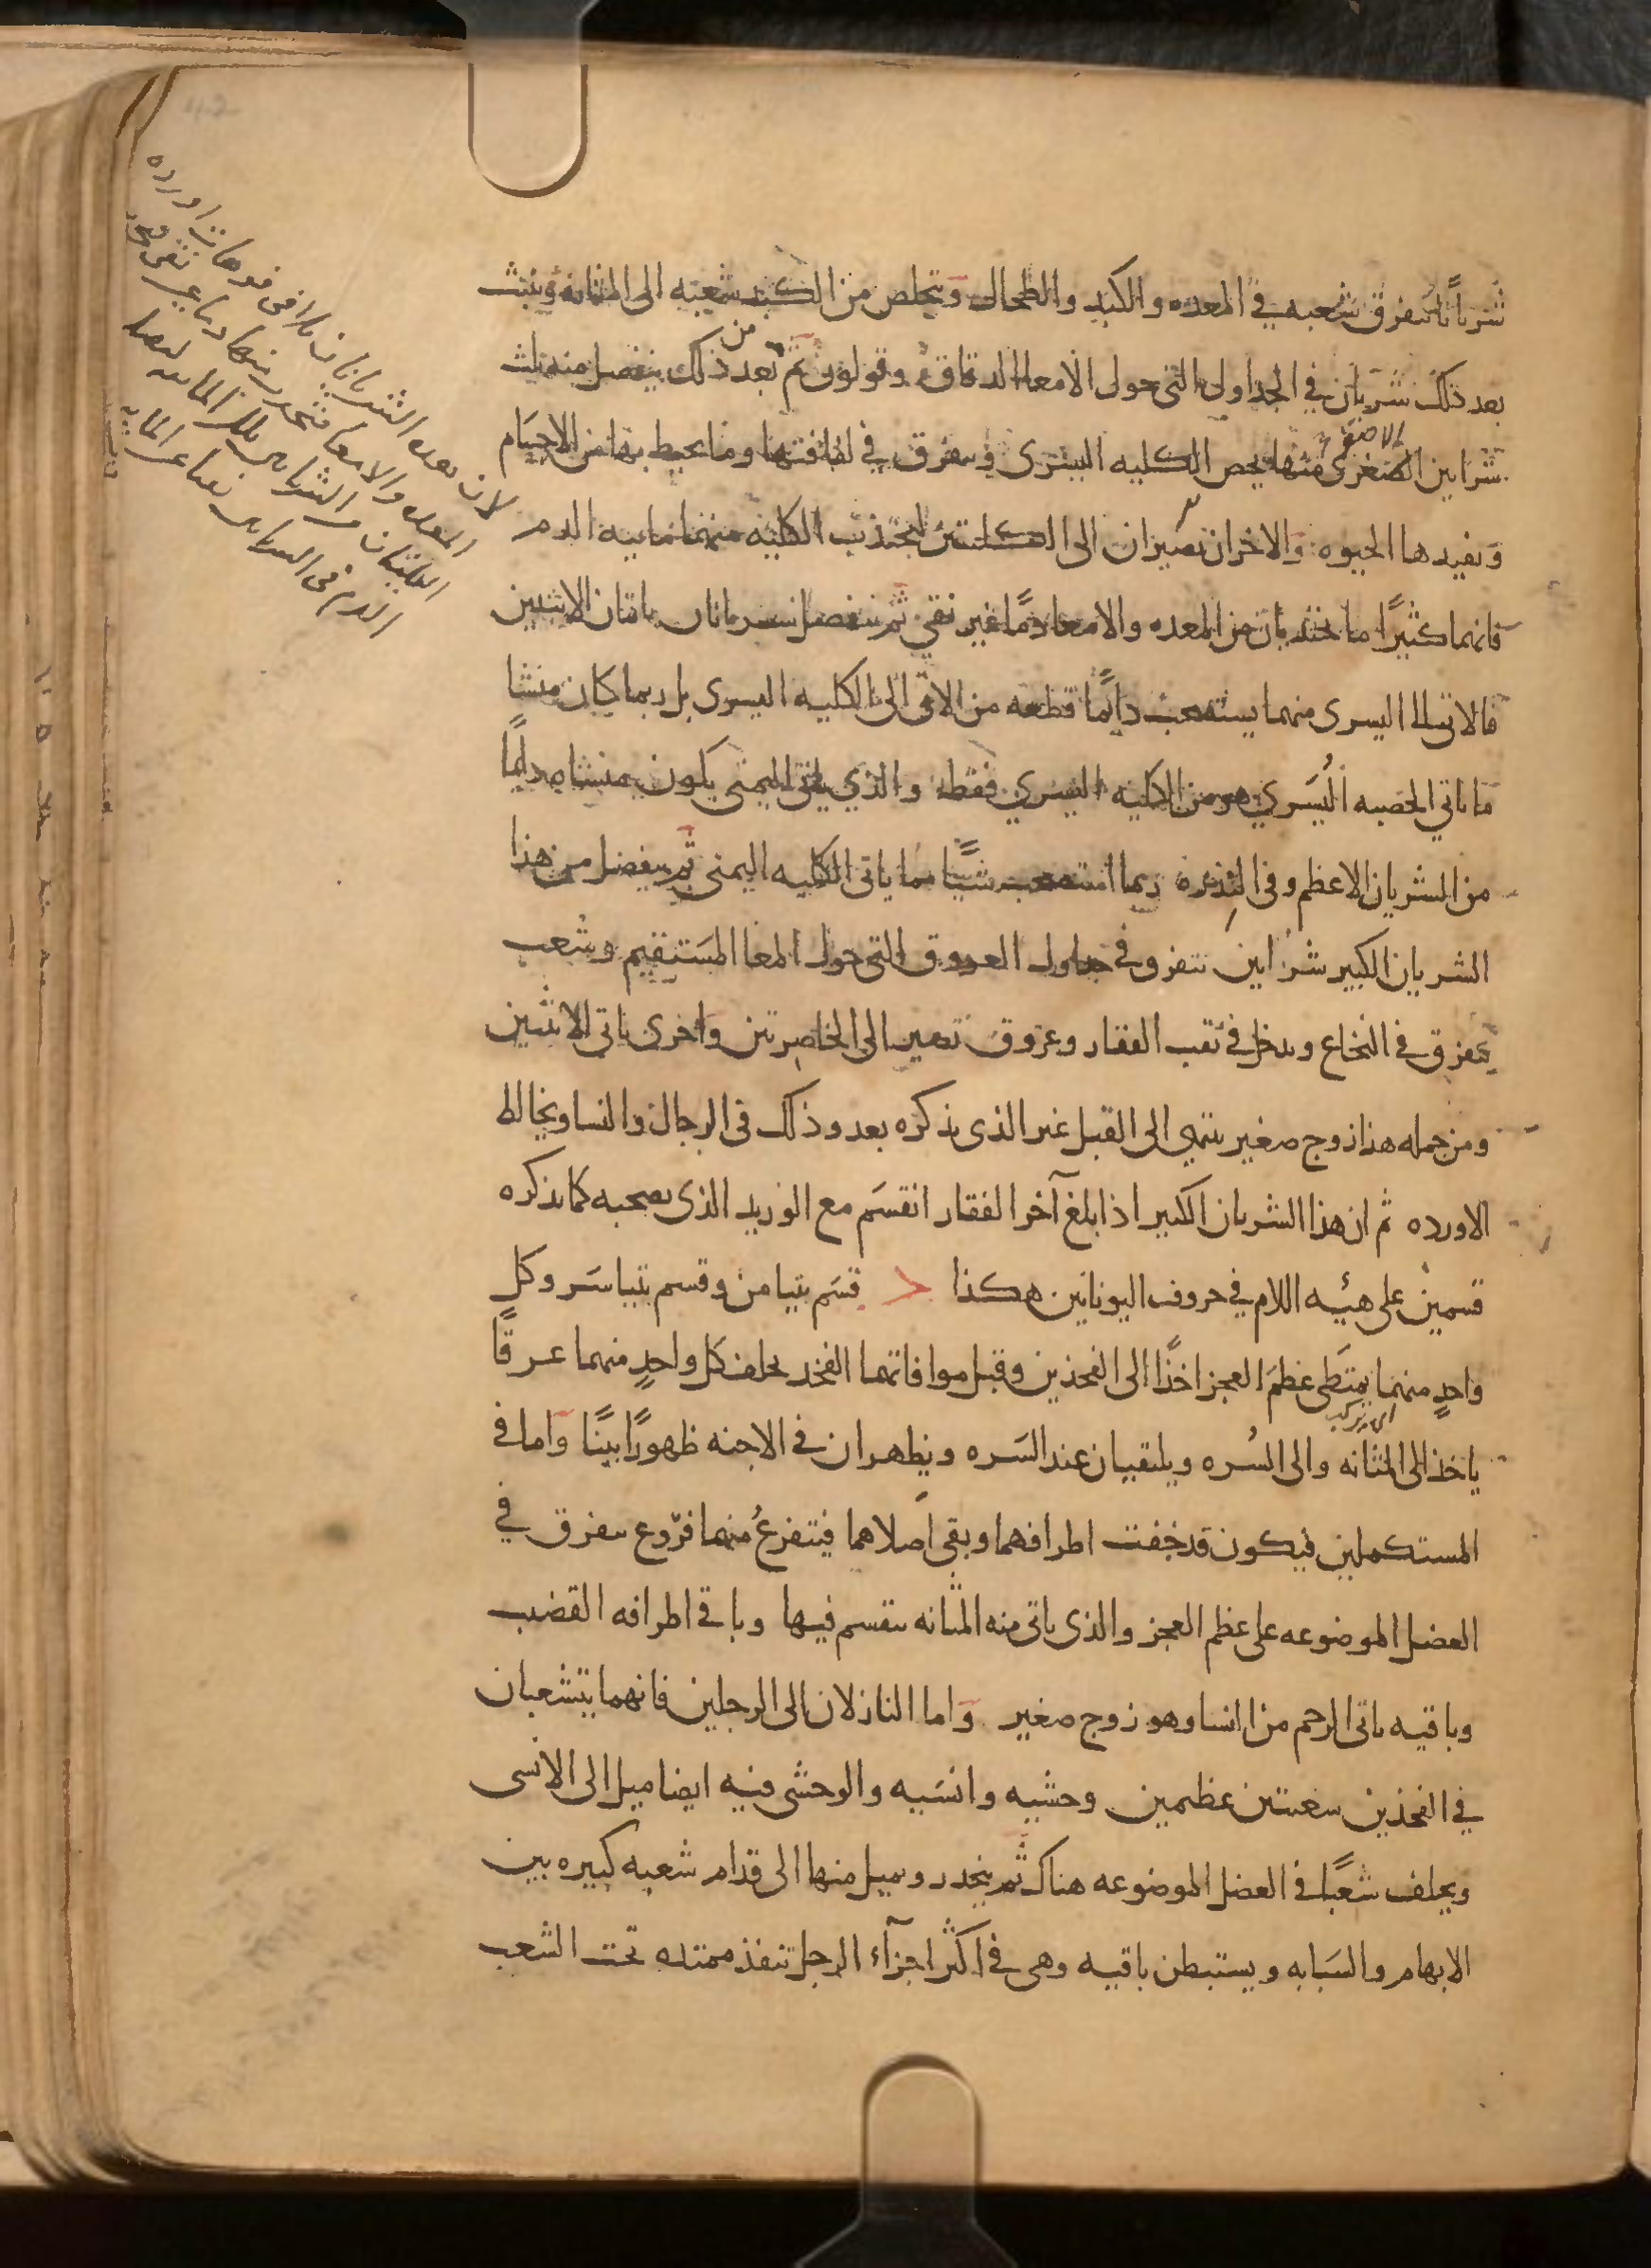 شرياناً تتفرق شعبه في المعده والكبد والطحال ويتخلص من الكبد شعبه الى المثانه وينبث
بعد ذلك شريان في الجداول التي حول الامعا الدقاق وقولون ثم من بعد ذلك ينفصل منه ثلث
شرايين الصغرى منها يخص الكليه اليسرى ويتفرق في لفافتها وما يحيط بها من الاجسام
ويفيدها الحيوه والاخران تصيران الى الكليتين لتجتذب الكليه منهما مائيه الدم
فانهما كثيرًا ما تجتذبان من المعده والامعا دمًا غير نقي ثم ينفصل شريانان ياتيان الانثيين
فالاتى الى اليسرى منهما يستصحب دائمًا قطعه من الاتى الى الكليه اليسرى بل ربما كان منشا
ما ياتي الخصيه اليُسَري هو من الكليه اليسري فقط والذي ياتى اليمنى يكون منشاه دايمًا
من الشريان الاعظم وفي النُدره ربما استصحب شيًا مما ياتى الكليه اليمنى ثم ينفصل من هذا
الشريان الكبير شرايين تتفرق في جداول العروق التي حول المعا المستقيم وشعب
يتفرق في النخاع ويدخل في ثقب الفقار وعروق تصير الى الخاصرتين واخرى ياتى الانثيين
ومن جمله هذا زوج صغير ينتهي الى القبل غير الذى نذكره بعد وذلك في الرجال والنسا ويخالط
الاورده ثم ان هذا الشريان الكبير اذا بلغ آخر الفقار انقسَم مع الوريد الذى يصحبه كما نذكره
قسمين على هيئه اللام في حروف اليونانين هكذا < قسَم يتيامن وقسم يتياسَر وكل
واحدٍ منهما يمتَطى عظم العجز اخذًا الى الفخذين وقبل موافاتهما الفخذ يخلف كل واحدٍ منهما عرقًا
اى يركب
ياخذ الى المثانه والى السُره ويلتقيان عند السَره ويظهران في الاجنه ظهورًا بينًا واما في
المستكملين فيكون قد خفت اطرافهما وبقى اصلاهما فيتفرعُ منهما فروع تتفرق في
العضل الموضوعه على عظم العجز والذى ياتى منه المثانه ينقسم فيها وباقي اطرافه القضيب
وباقيه ياتى الرحم من النسا وهو زوج صغير واما النازلان الى الرجلين فانهما يتشعبان
في الفخذين شعبتين عظيمين وحشيه وانسَيه والوحشى فيه ايضا ميل الى الانسى
ويخلف شعبًا في العضل الموضوعه هناك ثم ينحدر ويميل منها الى قدام شعبه كبيره بين
الابهام والسَبابه ويستبطن باقيه وهى في اكثر اجزآء الرجل تنفذ ممتده تحت الشعب
لان هذه الشريانات
المعده والامعا